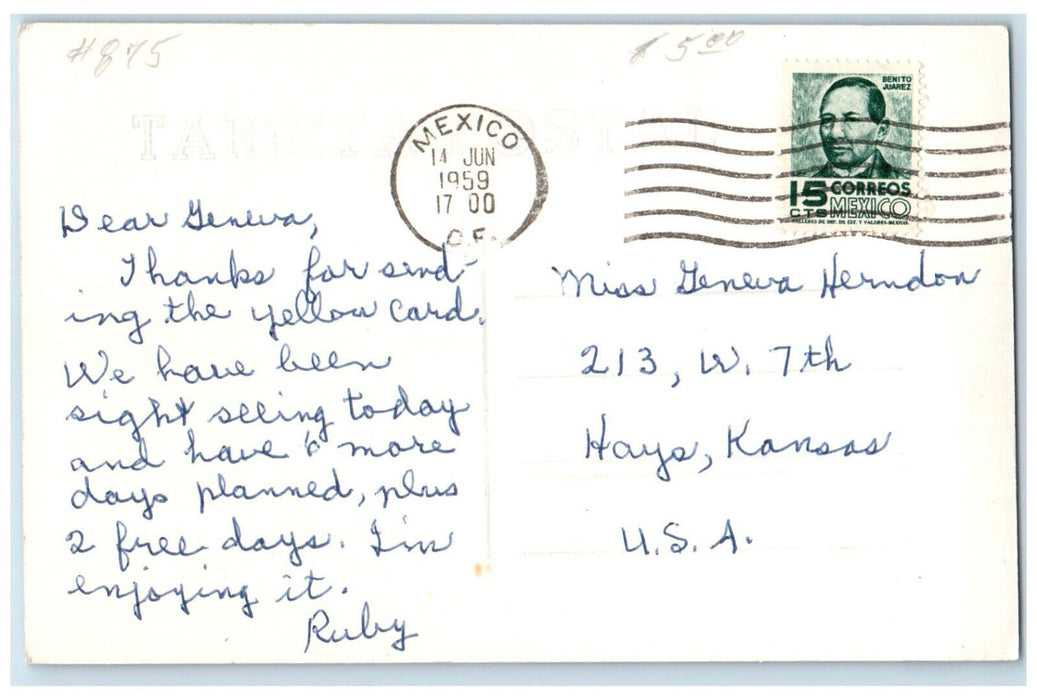 #875
$5.00
BENITO
JUAREZ
15 CORREOS
CTS MEXICO
MEXICO
14 JUN
1959
17 00
D.F.
Dear Geneva,
Thanks for send-
ing the yellow card.
We have been
sight seeing today
and have 6 more
days planned, plus
2 free days. I'm
enjoying it.
Ruby
Miss Geneva Herndon
213, W. 7th
Hays, Kansas
U.S.A.